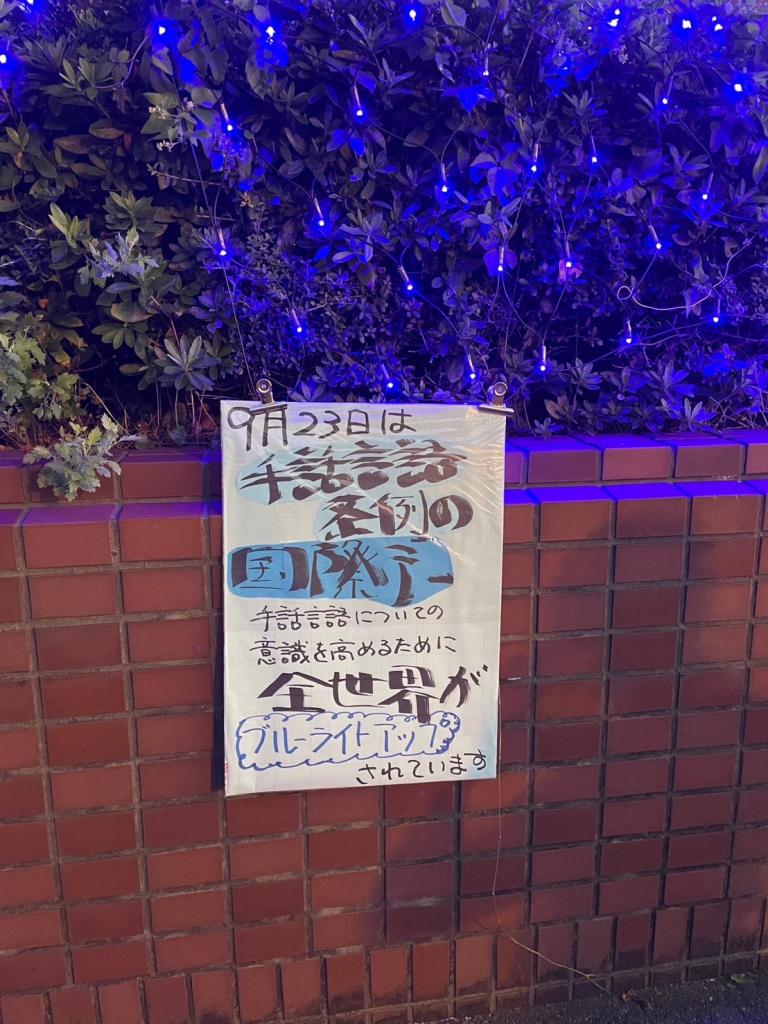 9月23日は
手話言語
条例の
国際デー
手話言語についての
意識を高めるために
全世界が
ブルーライトアップ
されています